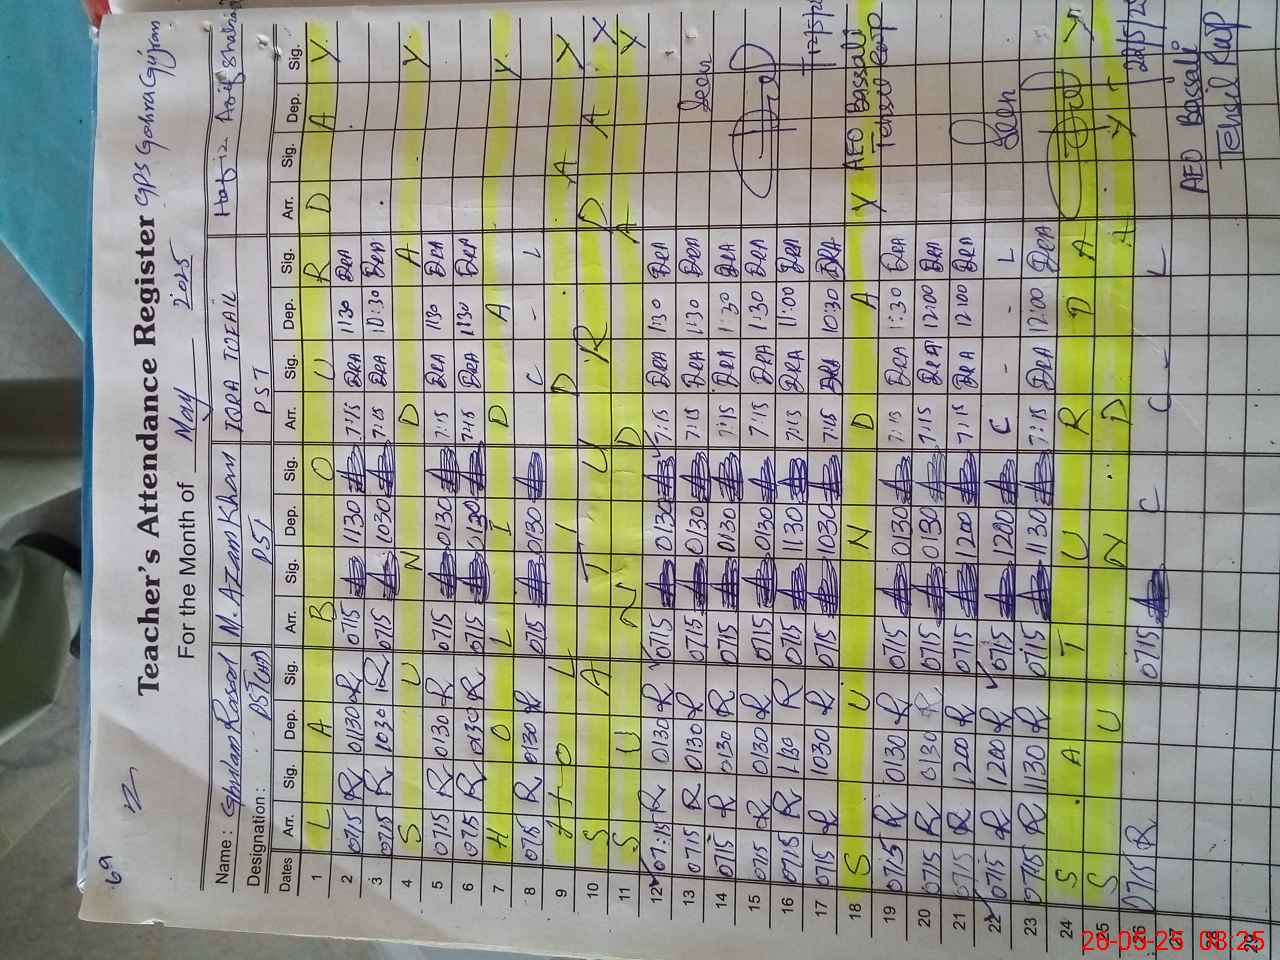 69
Teacher's Attendance Register GPS Gohra Gujran
For the Month of May 2025
Name: Ghulam Rasool M. Azam Khan IQRA TOFAIL Hafiz Asif Shahzad
Designation: PST PST
Dates Arr. Sig. Dep. Sig. Arr. Sig. Dep. Sig. Arr. Sig. Dep. Sig. Arr. Sig. Dep. Sig.
1 L A B O U R D A Y
2 0715 R 01130 R 0715 1130 7:15 DRA 1130 DRA
3 0715 R 1030 R 0715 1030 7:15 DRA 10:30 DRA
4 S U N D A Y
5 0715 R 0130 R 0715 0130 7:15 DRA 1:30 DRA
6 0715 R 0130 R 0715 0130 7:15 DRA 1:30 DRA
7 H O L I D A Y
8 0715 R 0130 R 0715 0130 C - L
9 H O L I D A Y
10 S A T U R D A Y
11 S U N D A Y
12 07:15 R 0130 R 0715 0130 7:15 DRA 1:30 DRA
13 0715 R 0130 R 0715 0130 7:15 DRA 1:30 DRA Seen
14 0715 R 0130 R 0715 0130 7:15 DRA 1:30 DRA
15 0715 R 0130 R 0715 0130 7:15 DRA 1:30 DRA
16 0715 R 1130 R 0715 1130 7:15 DRA 11:00 DRA
17 0715 R 1030 R 0715 1030 7:15 DRA 10:30 DRA 12/5/25
18 S U N D A Y AEO Bassali
19 0715 R 0130 R 0715 0130 7:15 DRA 1:30 DRA Tehsil Rwp
20 0715 R 0130 R 0715 0130 7:15 DRA 12:00 DRA
21 0715 R 1200 R 0715 1200 7:15 DRA 12:00 DRA
22 0715 R 1200 R 0715 1200 C - - L Seen
23 0715 R 1130 R 0715 1130 7:15 DRA 12:00 DRA
24 S A T U R D A Y
25 S U N D A Y
26 0715 R 0715 C C - L 22/5/25
27 AEO Bassali
28 Tehsil Rwp
29
26-05-25 08:25